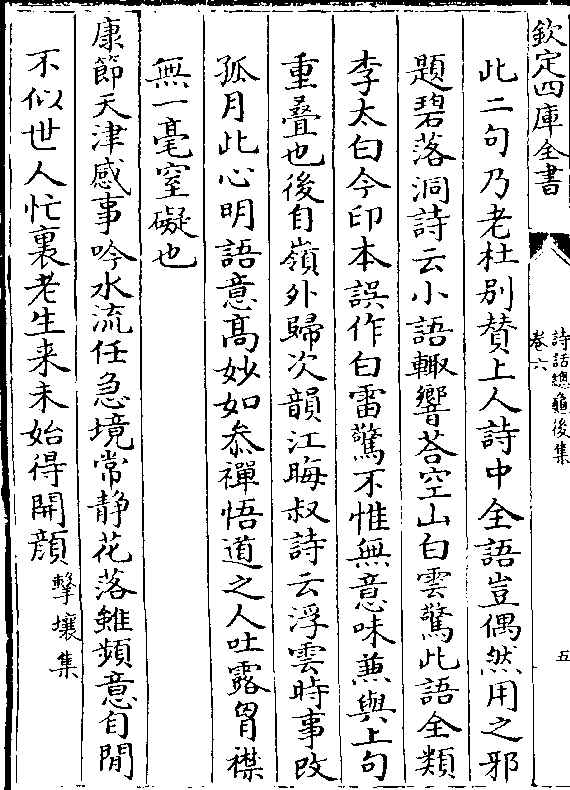 欽定四庫全書
詩話總龜後集
卷六
五
此二句乃老杜別賛上人詩中全語豈偶然用之邪
題碧落洞詩云小語輙響荅空山白雲驚此語全類
李太白今印本誤作白雷驚不惟無意味兼與上句
重疊也後自嶺外歸次韻江晦叔詩云浮雲時事改
孤月此心明語意髙妙如叅禪悟道之人吐露胷襟
無一毫窒礙也
康節天津感事吟水流任急境常静花落雖頻意自閒
不似世人忙裏老生来未始得開顔擊壤集